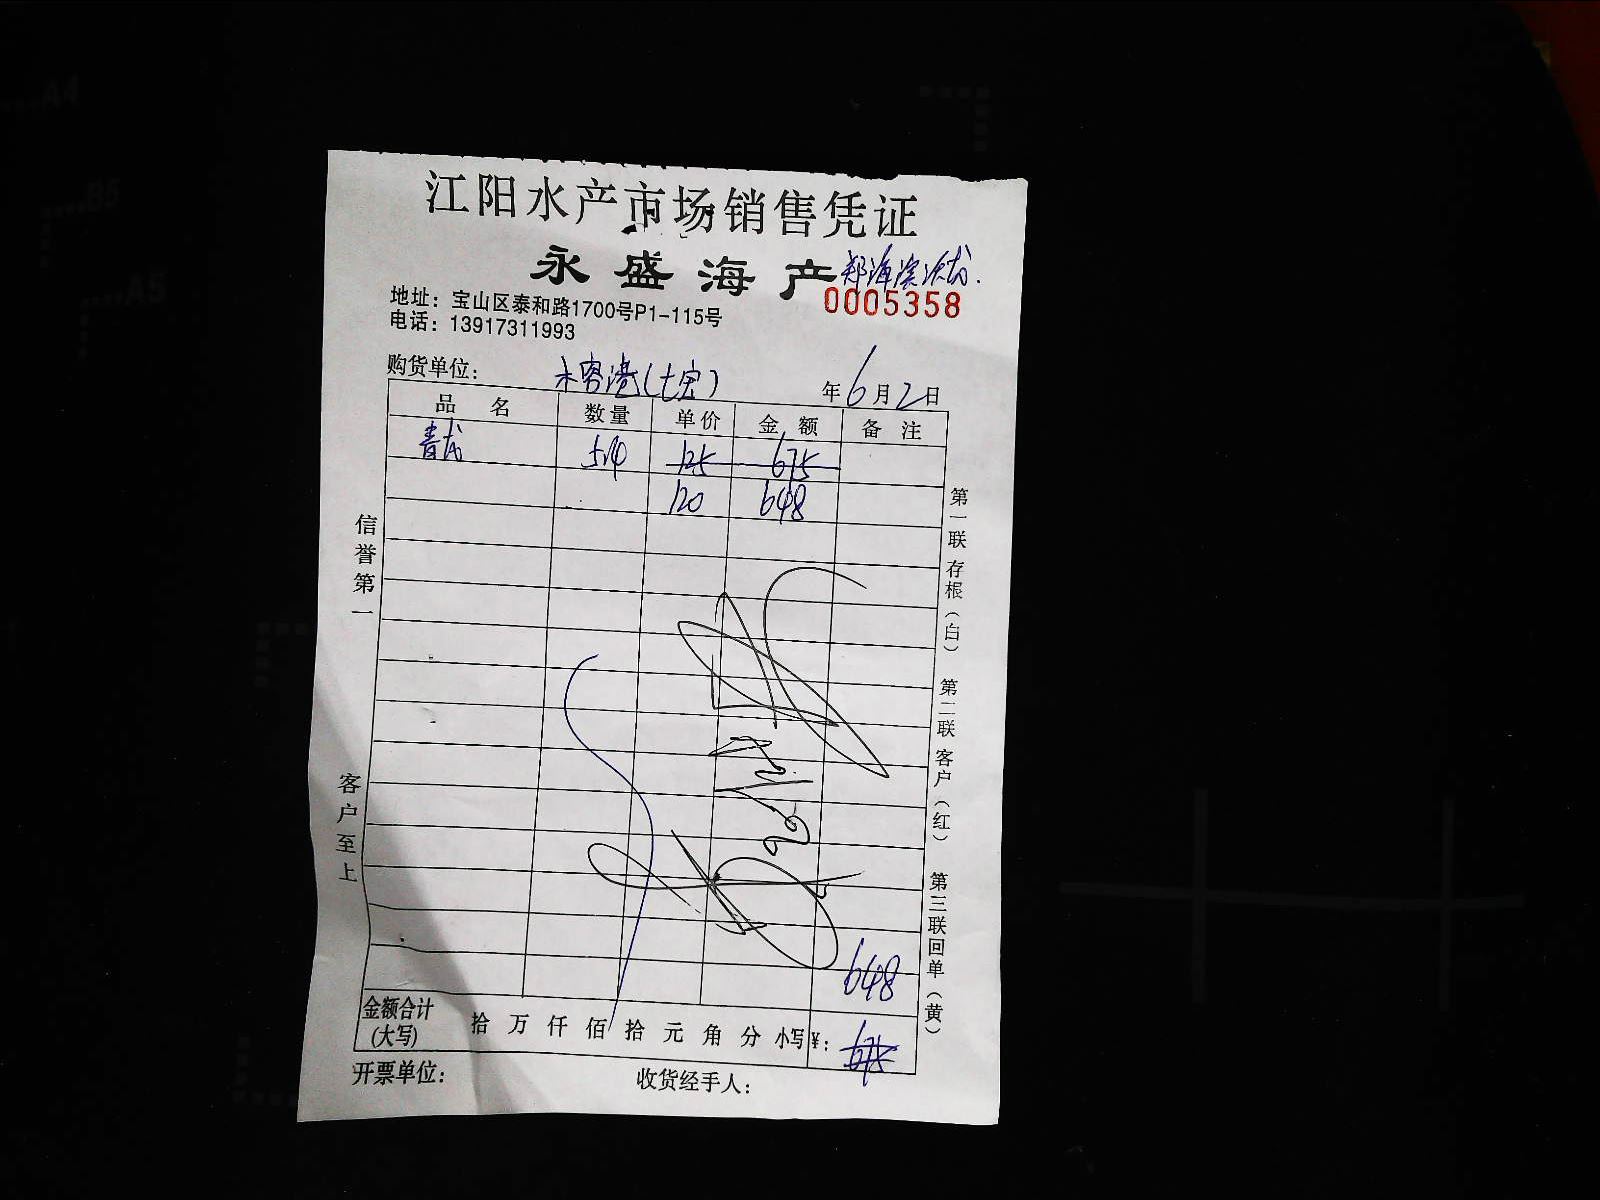 江阳水产市场销售凭证
永盛海产
0005358
地址：宝山区泰和路1700号P1-115号
电话：13917311993
购货单位： 木容港(七宝) 年6月2日
品名 数量 单价 金额 备注
青龙 5.4 125 675
120 648
信誉第一
客户至上
第一联 存根（白） 第二联 客户（红） 第三联 回单（黄）
648
金额合计(大写) 拾 万 仟 佰 拾 元 角 分 小写¥： 675
开票单位： 收货经手人：